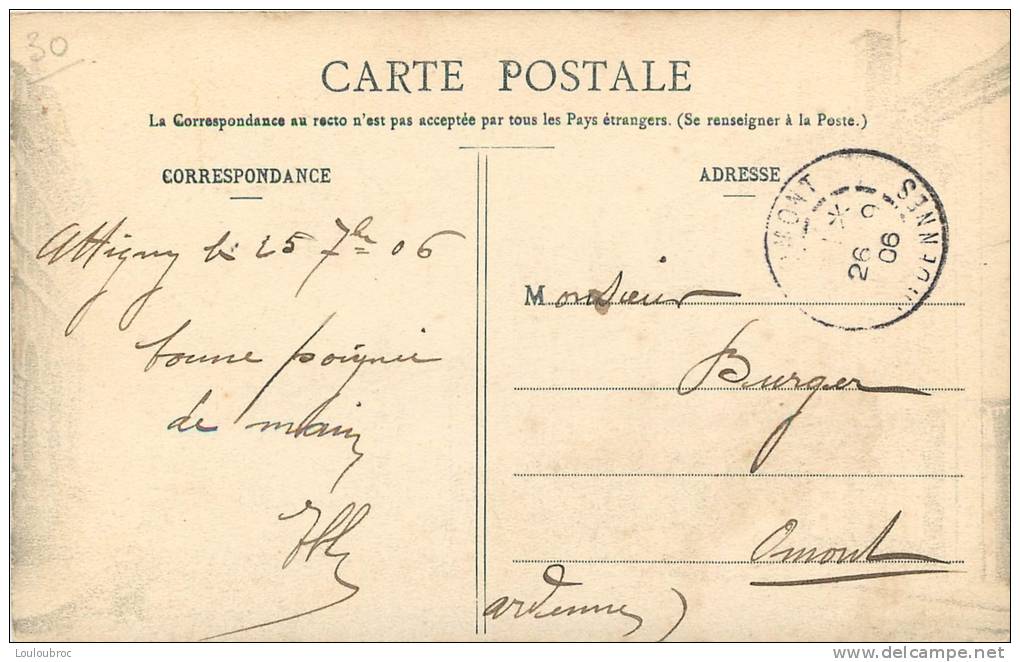 30
CARTE POSTALE
La Correspondance au recto n'est pas acceptée par tous les Pays étrangers. (Se renseigner à la Poste.)
CORRESPONDANCE
ADRESSE
OMONT ARDENNES
26
9
06
Attigny le 25 7bre 06
bonne poignée
de main
Monsieur
Burger
Omont
ardennes)
Louloubroc
www.delcampe.net